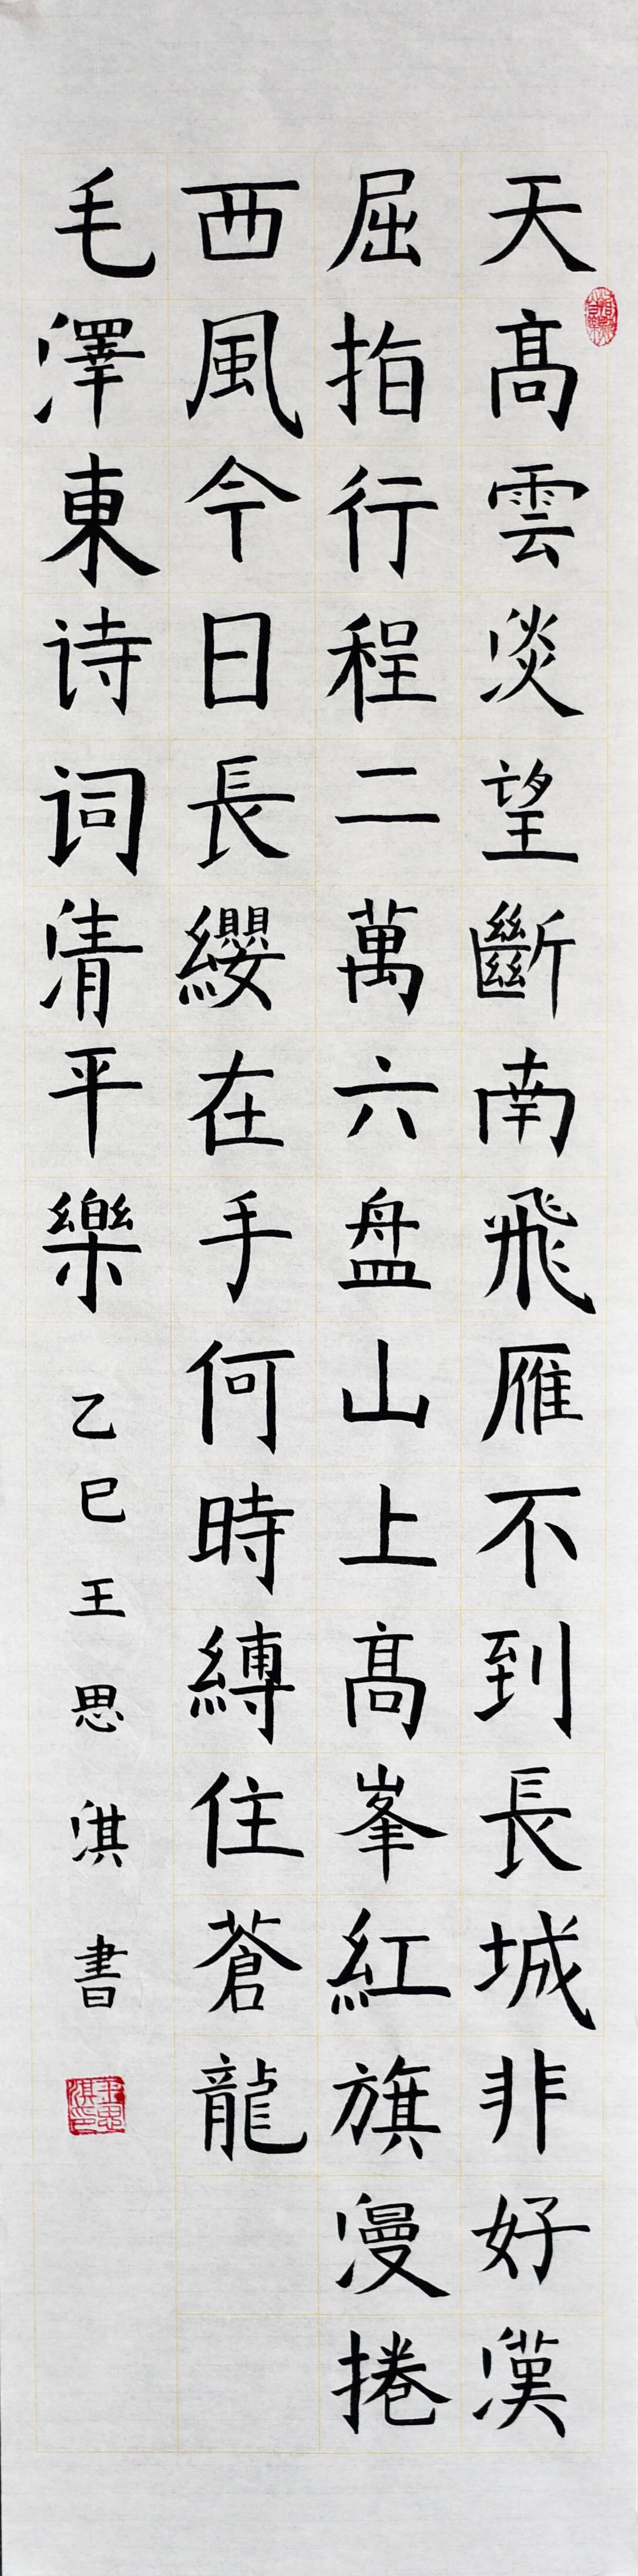 天高雲淡望斷南飛雁不到長城非好漢
屈指行程二萬六盘山上高峯紅旗漫捲
西風今日長纓在手何時縛住蒼龍
毛澤東诗词清平樂
乙巳王思淇書
王思淇印